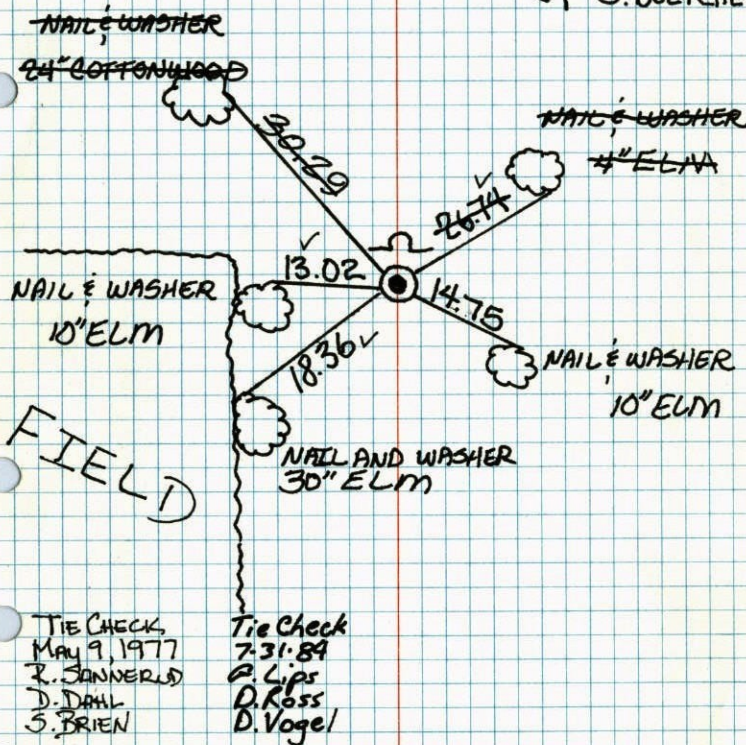 NAIL & WASHER
24" COTTONWOOD
30.29
NAIL & WASHER
4" ELM
26.74 ✓
✓
13.02
NAIL & WASHER
10" ELM
14.75
NAIL & WASHER
10" ELM
18.36 ✓
NAIL AND WASHER
30" ELM
FIELD
TIE CHECK
MAY 9, 1977
R. SANNERUD
D. DAHL
S. BRIEN
Tie Check
7-31-84
Lips
D. Ross
D. Vogel